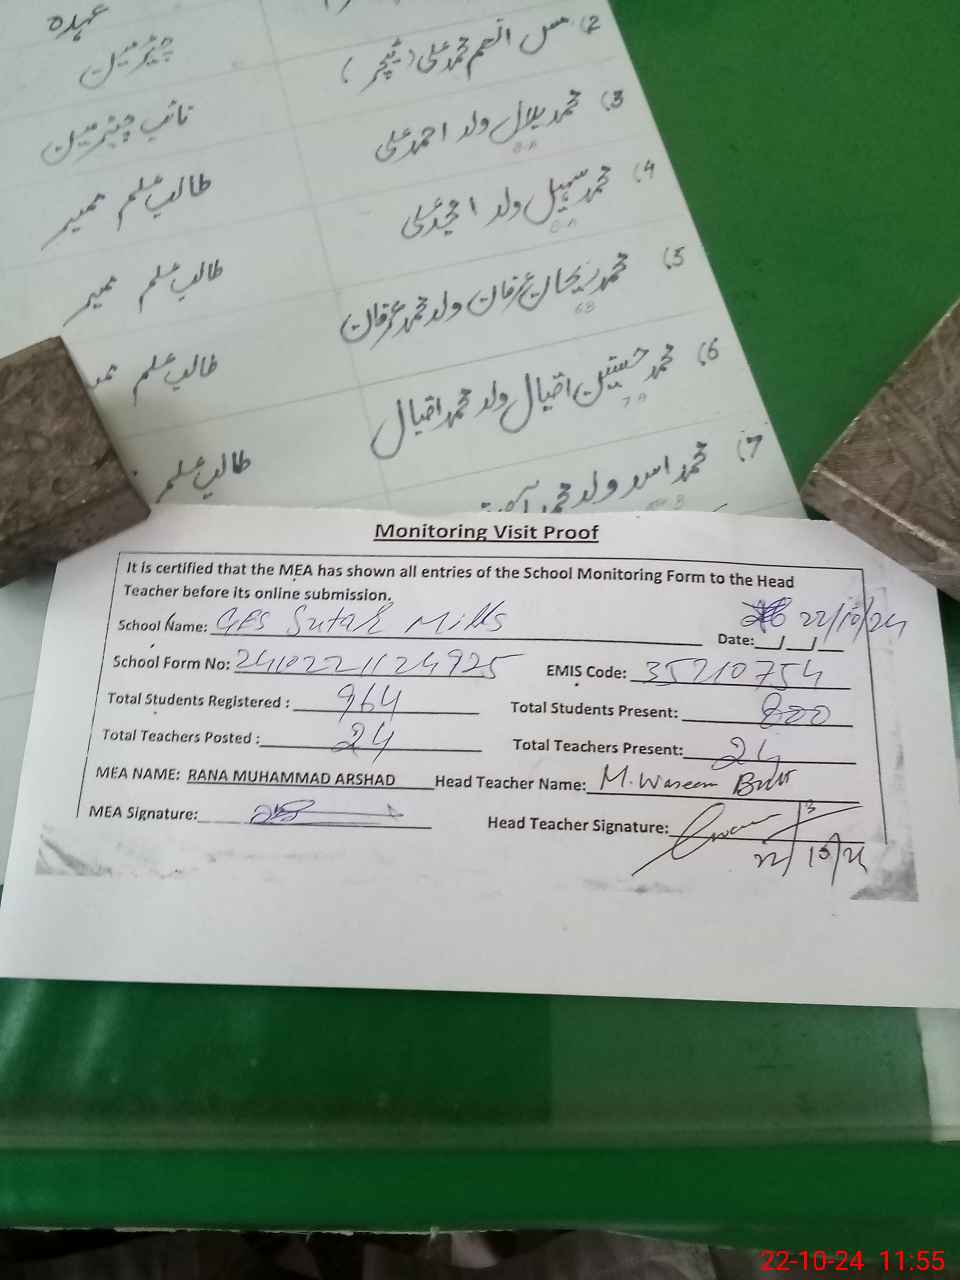 عہدہ
2) مس انعم محمد علی (ٹیچر) چیئرمین
3) محمد بلال ولد احمد علی نائب چیئرمین
8A
4) محمد سہیل ولد امجد علی طالب علم ممبر
8A
5) محمد ریحان عرفان ولد محمد عرفان طالب علم ممبر
6B
6) محمد حسنین اقبال ولد محمد اقبال طالب علم
7A
7) محمد اسد ولد محمد طالب علم
Monitoring Visit Proof
It is certified that the MEA has shown all entries of the School Monitoring Form to the Head
Teacher before its online submission.
School Name: GES Sutar Mills Date: 22/10/24
School Form No: 2410221124925 EMIS Code: 35210754
Total Students Registered : 964 Total Students Present: 800
Total Teachers Posted : 24 Total Teachers Present: 24
MEA NAME: RANA MUHAMMAD ARSHAD Head Teacher Name: M. Waseem Butt
MEA Signature: Head Teacher Signature:
22/10/24
22-10-24 11:55